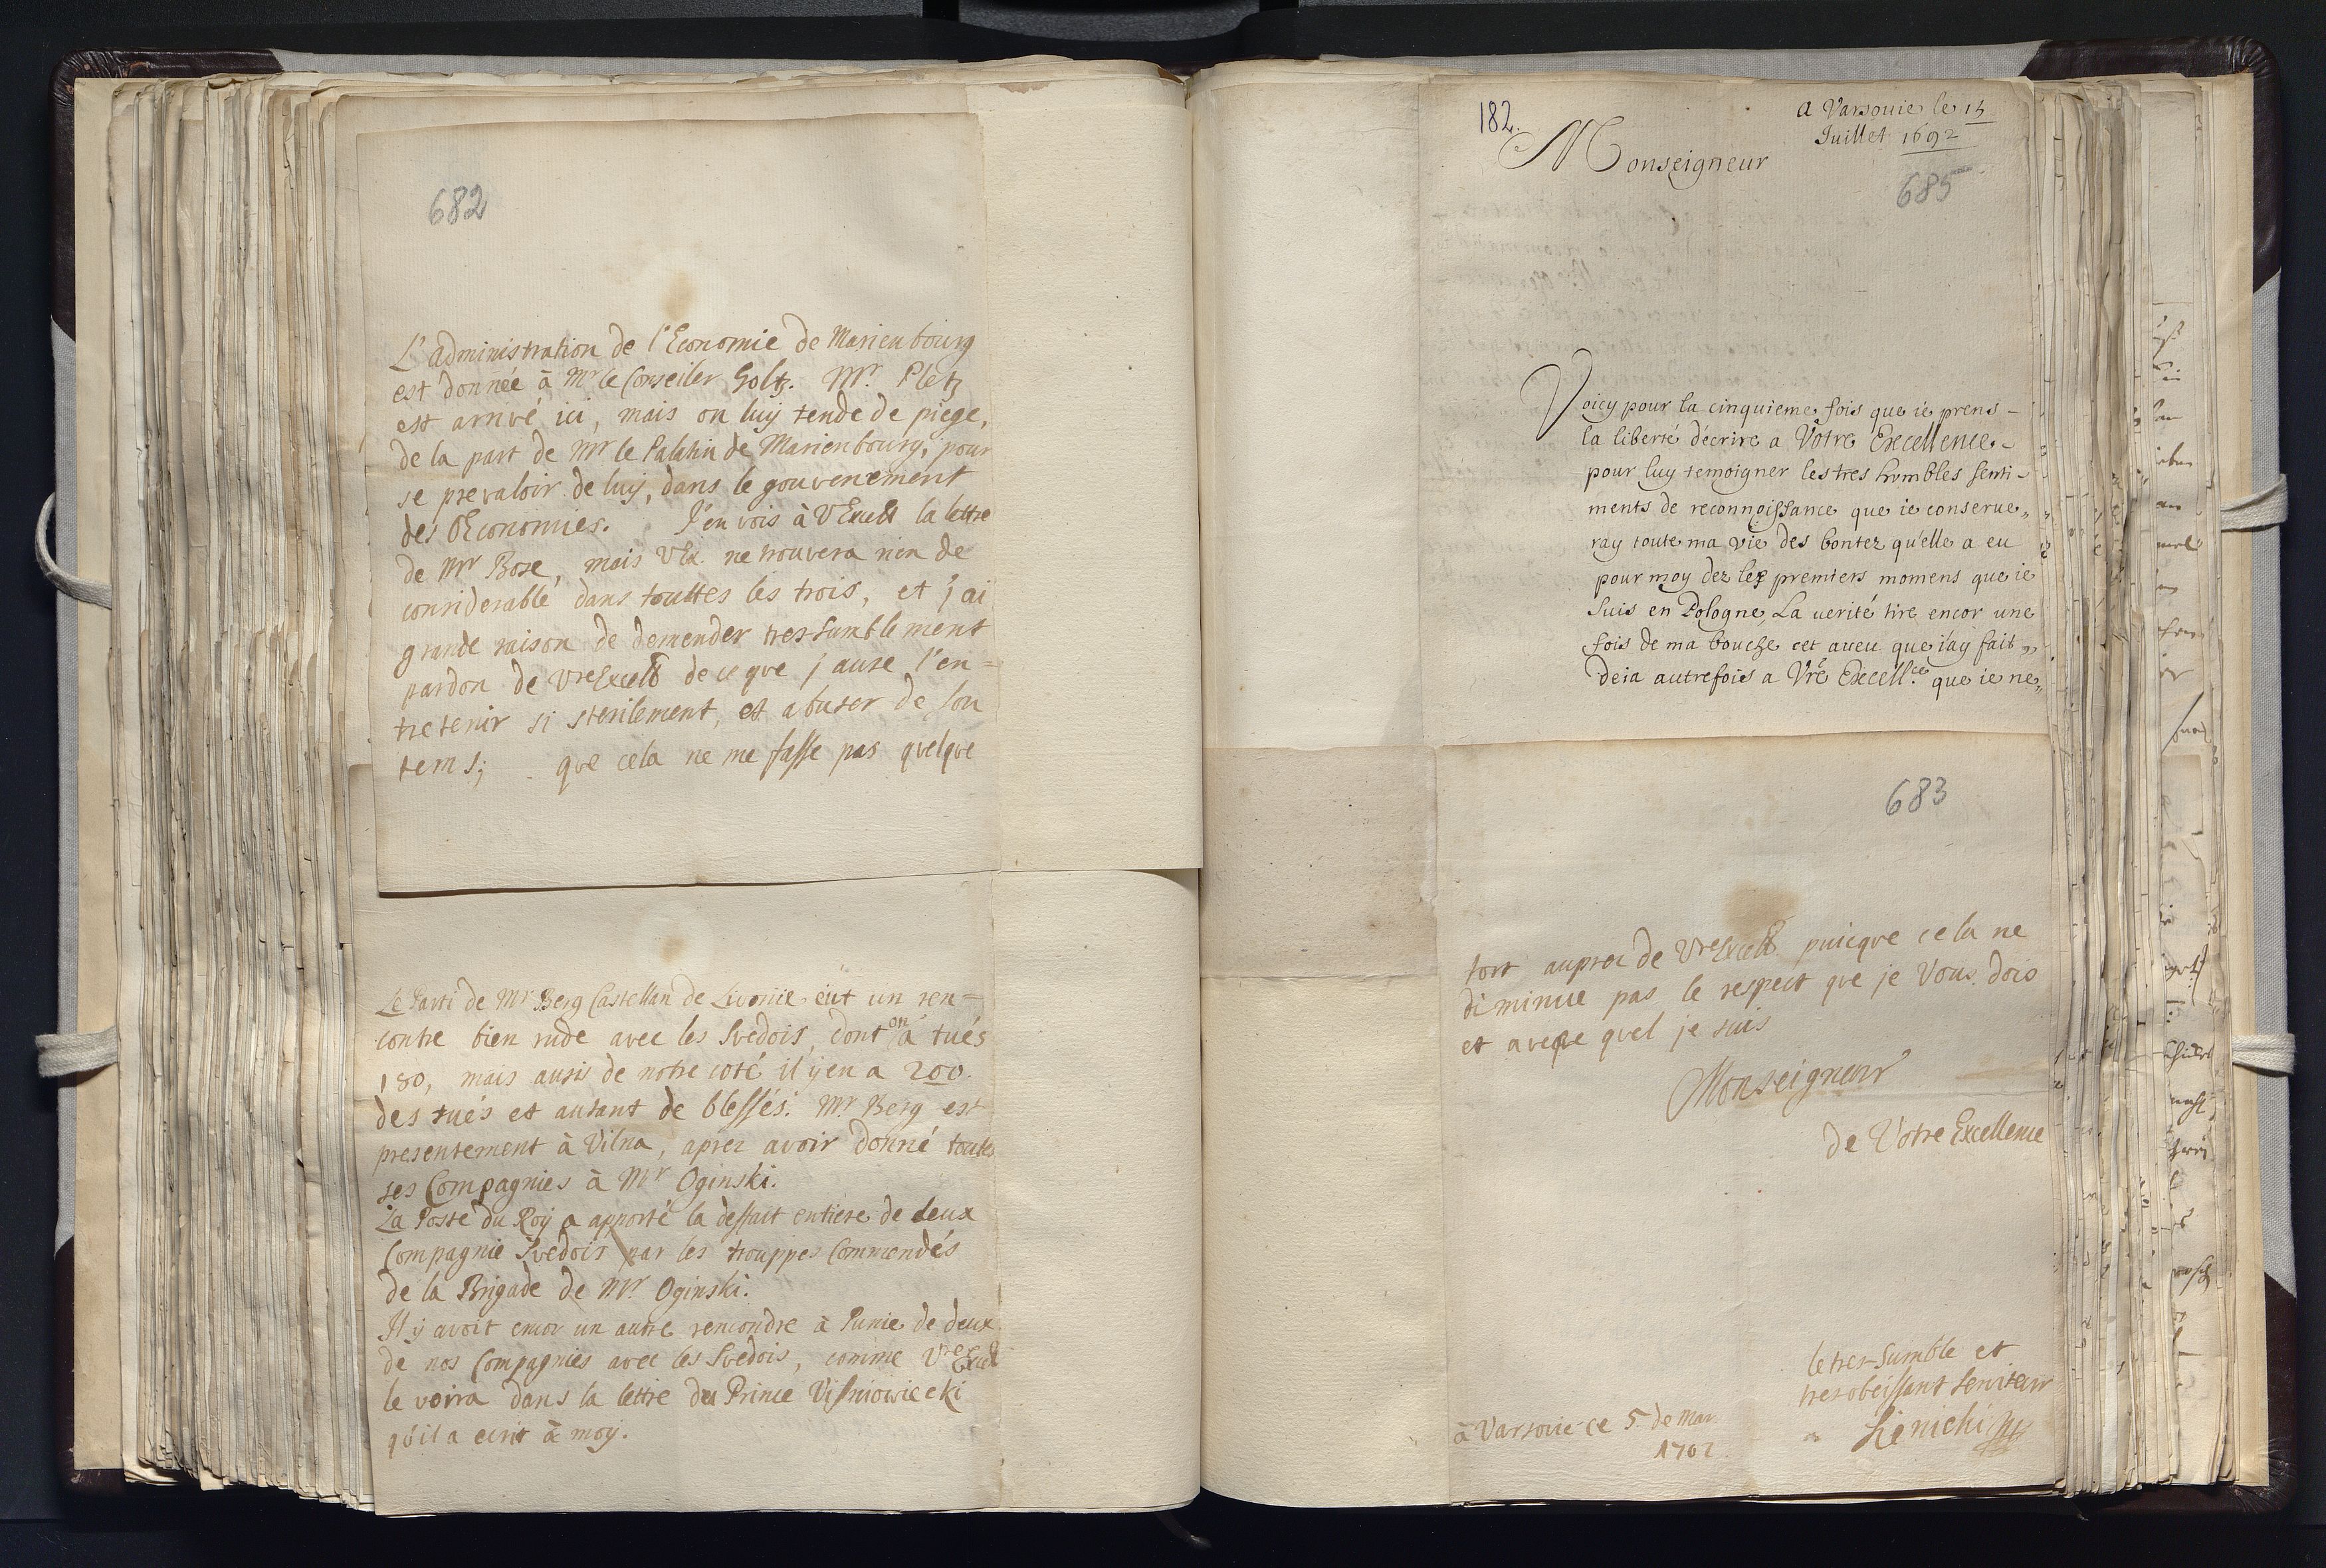 682
L'administration de l'Economie de Marienbourg
est donnée à Mr le Conseiler Goltz. Mr. Pletz
est arrivé ici, mais on luy tende de piege,
de la part de Mr le Palatin de Marienbourg, pour
se prevaloir de luy, dans le gouvenement
des Oeconomies. J'en vois à VExcell la lettre
de Mr Bose, mais VEx. ne trouvera rien de
considerable dans touttes les trois, et j'ai
grande raison de demender tres-humblement
pardon de VreExcell de ce que j'ause l'en=
tretenir si sterilement, et abuser de son
tems; que cela ne me fasse pas quelque
Le Parti de Mr Berg Castellan de Livonie eut un ren-
contre bien rude avec les Svedois, dont on a tués
180, mais ausis de notre coté il y en a 200.
des tués et autant de blessés. Mr Berg est
presentement à Vilna, aprez avoir donné toutes
ses Compagnies à Mr Oginski.
La Poste du Roy a apporté la deffait entiere de deux
Compagnie Svedois par les trouppes Commendés
de la Brigade de Mr. Oginski.
Il y avoit encor un autre rencondre à Punie de deux
de nos Compagnies avec les Svedois, comme Vre Excel
le voira dans la lettre du Prince Visniowiecki
qu'il a ecrit à moy.
182.
A Varsouie le 15
Juillet 1692
Monseigneur
685
Voicy pour la cinquieme fois que ie prens -
la liberté d'ecrire a Votre Excellence -
pour luy temoigner les tres humbles senti -
ments de reconnoissance que ie conserue„
ray toute ma vie des bontez qu'elle a eu
pour moy dez les premiers momens que ie
suis en Pologne, La uerité tire encor une
fois de ma bouche cet aueu que i'ay fait „
deia autrefois a Vre Excell.ce que ie ne„
683
tort auprez de VreExcell puicque cela ne
diminue pas le respect que je Vous dois
et aveque quel je suis
Monseigneur
de Votre Excellence
le tres-humble et
tresobeissant serviteur
à Varsovie ce 5 de Mar.
1702